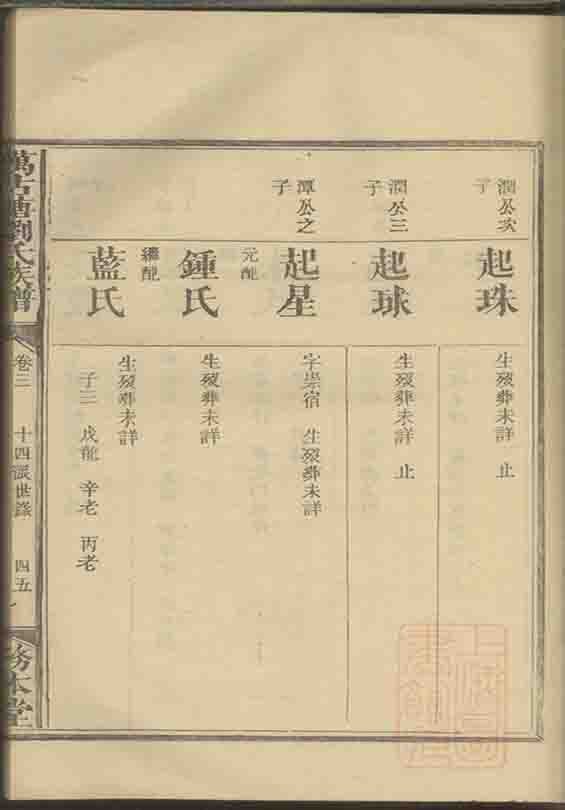 潤公次子
起珠
生歿葬未詳 止
潤公三子
起球
生歿葬未詳 止
潭公之子
起星
字崇宿 生歿葬未詳
元配
鍾氏
生歿葬未詳
繼配
藍氏
生歿葬未詳
子三 戊龍 辛老 丙老
劉氏族譜
卷三
十四派世錄
四五
務本堂